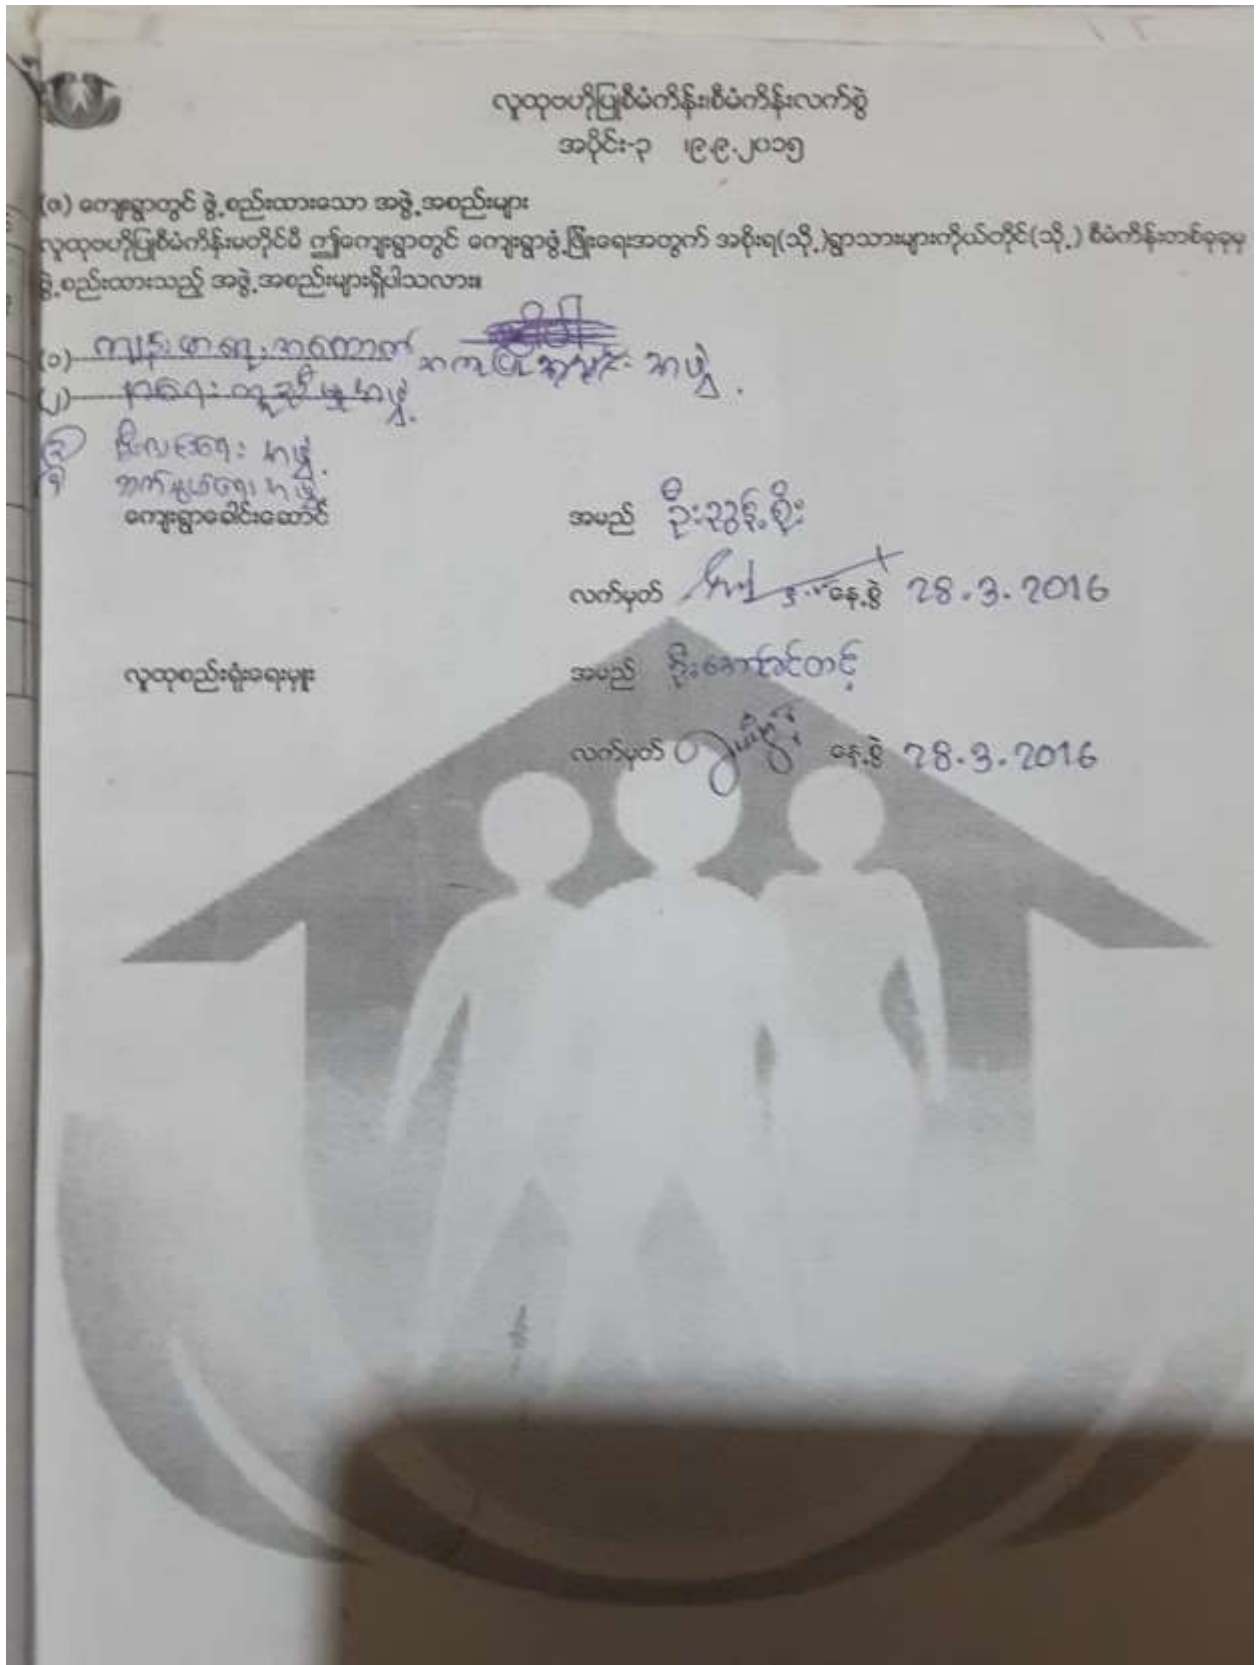 လူထုဗဟိုပြုစီမံကိန်း၊စီမံကိန်းလက်စွဲ
အပိုင်း-၃ ၊၉.၉.၂၀၁၅
(ဇ) ကျေးရွာတွင် ဖွဲ့စည်းထားသော အဖွဲ့အစည်းများ
လူထုဗဟိုပြုစီမံကိန်းမတိုင်မီ ဤကျေးရွာတွင် ကျေးရွာဖွံ့ဖြိုးရေးအတွက် အစိုးရ(သို့)ရွာသားများကိုယ်တိုင်(သို့) စီမံကိန်းတစ်ခုခုမှ
ဖွဲ့စည်းထားသည့် အဖွဲ့အစည်းများရှိပါသလား။
(၁) ကျန်းမာရေး အထောက် အကူပြု အဖွဲ့
(၂) နာရေး ကူညီမှု အဖွဲ့
၃ မီးလင်းရေး အဖွဲ့
၄ ဘက်နွယ်ရေး အဖွဲ့
ကျေးရွာခေါင်းဆောင် အမည် ဦးညွန့်စိုး
လက်မှတ် နေ့စွဲ 28.3.2016
လူထုစည်းရုံးရေးမှူး အမည် ဦးအောင်တင့်
လက်မှတ် နေ့စွဲ 28.3.2016